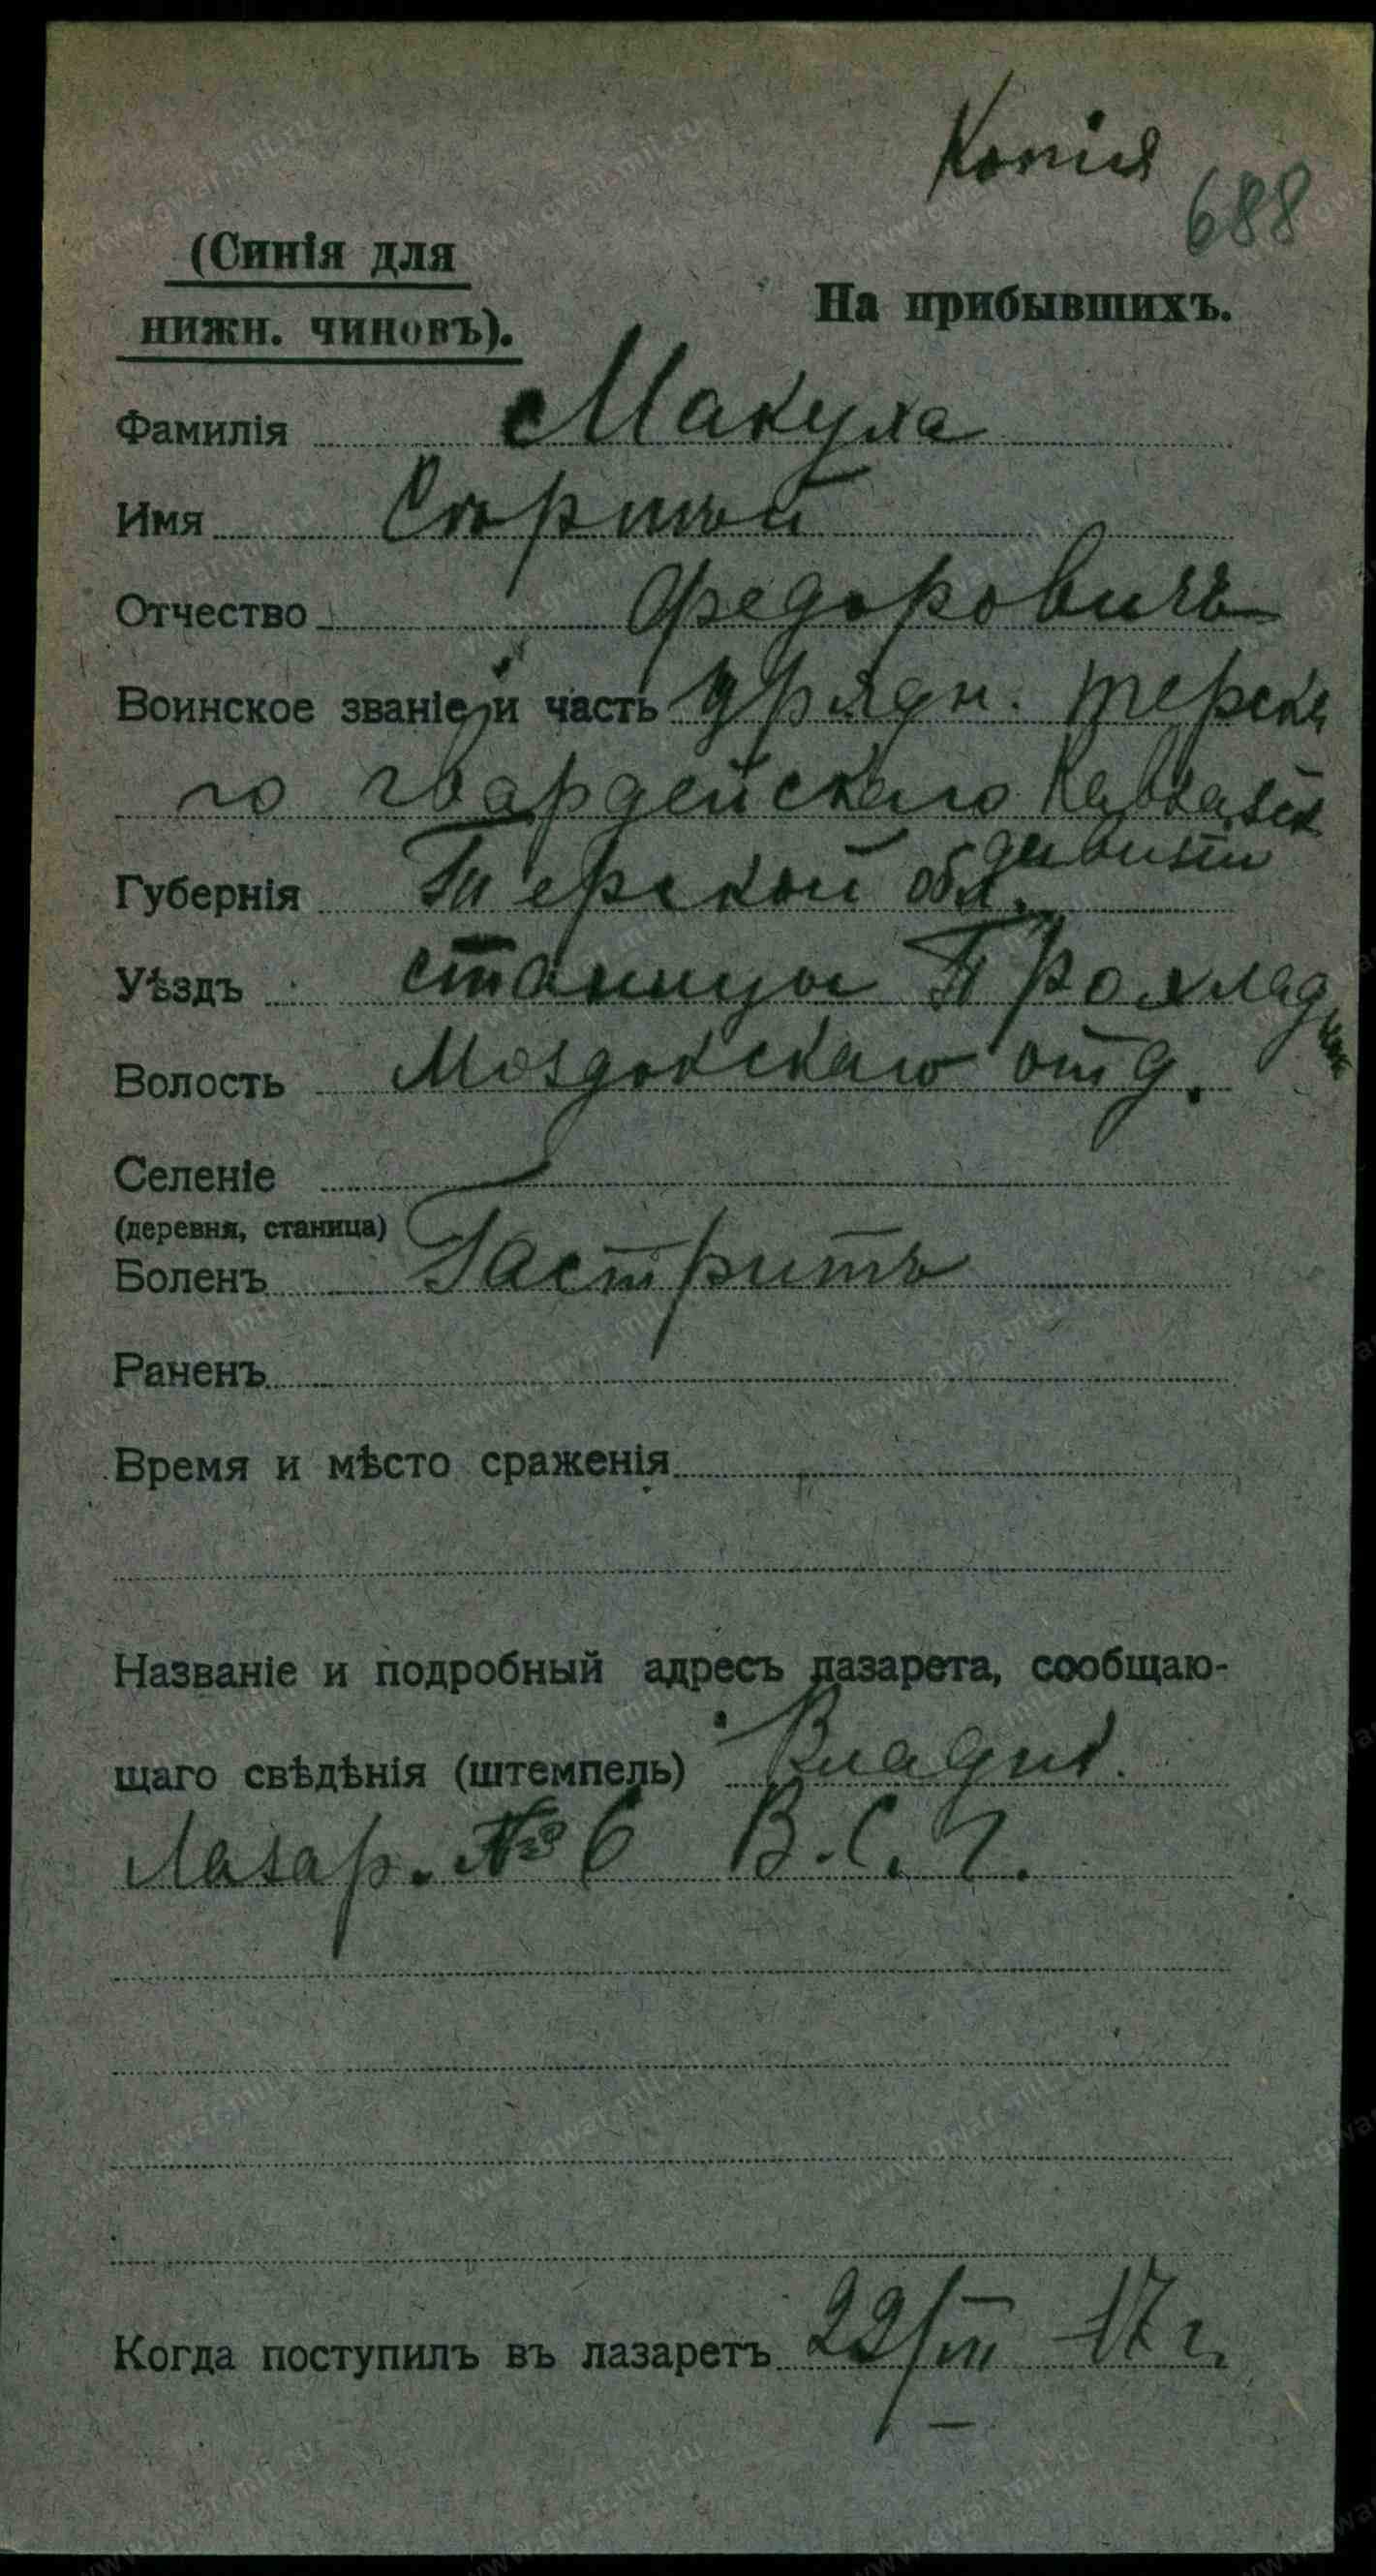 Копія
688
(Синія для
нижн. чиновъ).
На прибывшихъ.
Фамилія Макуха
Имя
Отчество Федоровичъ
Воинское званіе и часть Урядн. Терска
го гвардейскаго Кавказск
дивизіи
Губернія Терской обл.
Уѣздъ станицы Прохладн
Волость Моздокскаго отд.
Селеніе
(деревня, станица)
Боленъ Гастритъ
Раненъ
Время и мѣсто сраженія
Названіе и подробный адресъ лазарета, сообщаю-
щаго свѣдѣнія (штемпель) Владик.
Лазар. № 6 В.С.Г.
Когда поступилъ въ лазаретъ 22/III 17 г.
www.gwar.mil.ru